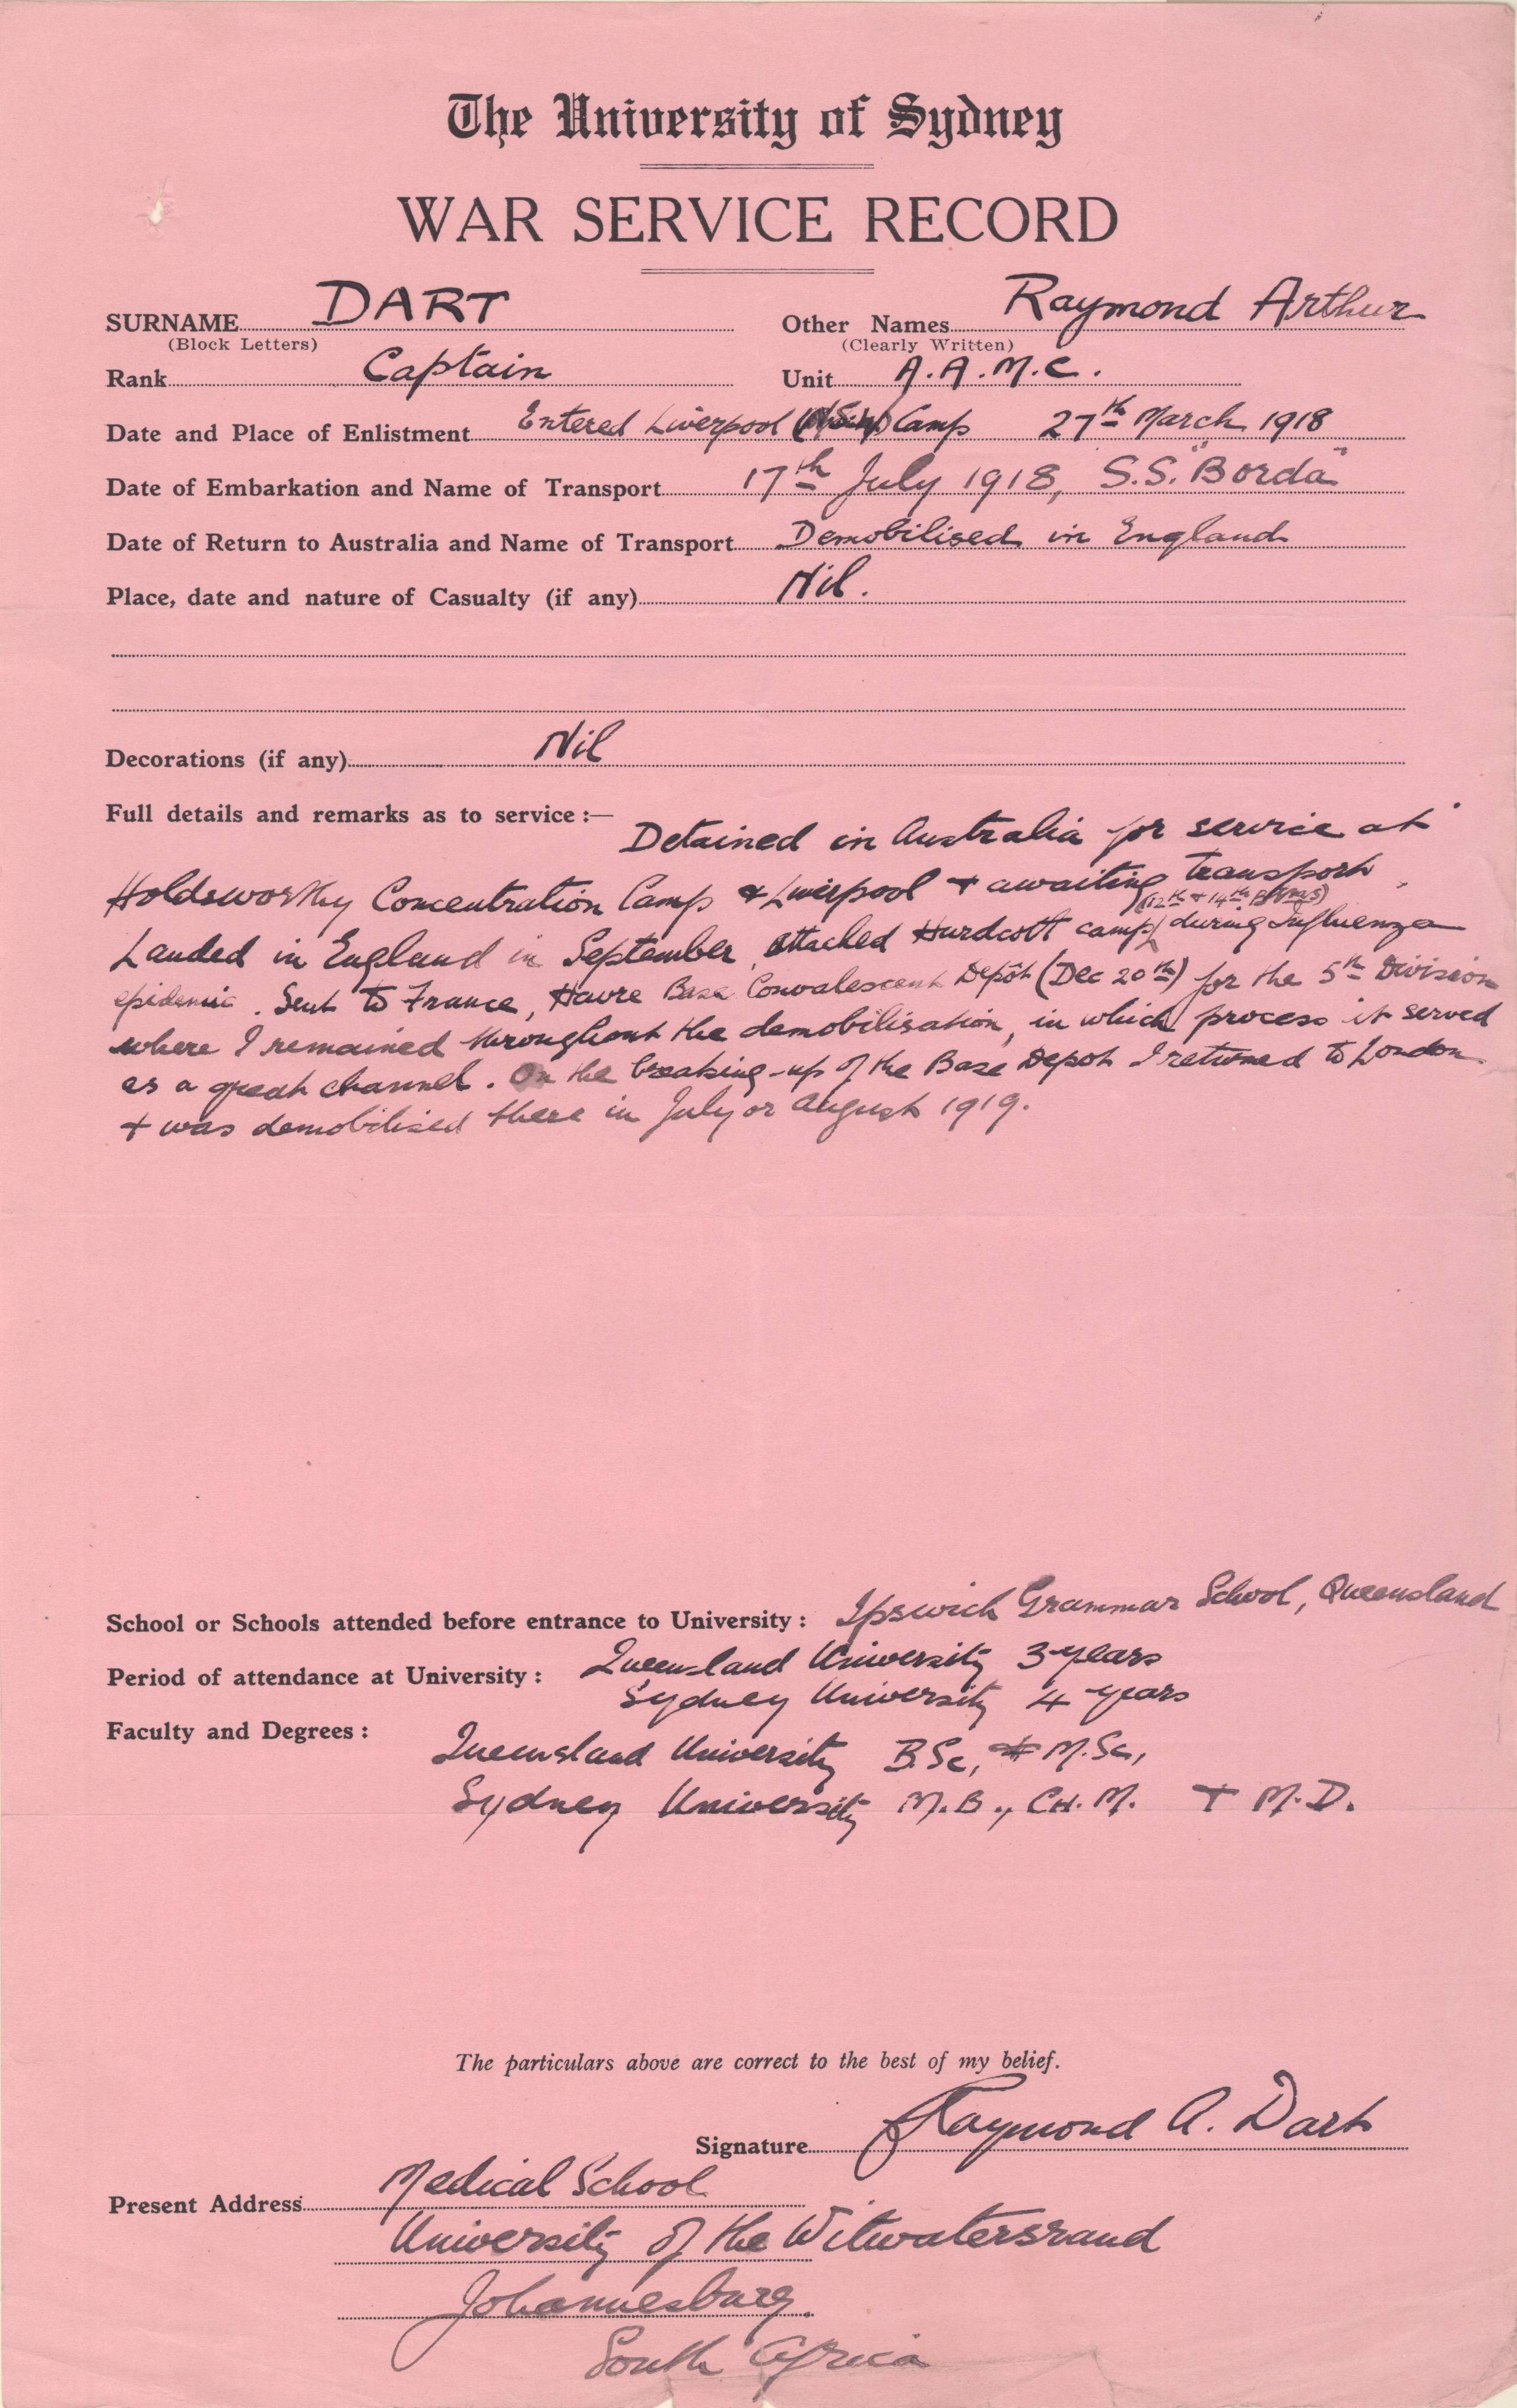 The University of Sydney
WAR SERVICE RECORD
SURNAME DART Other Names Raymond Arthur
(Block Letters) (Clearly Written)
Rank Captain Unit A.A.M.C.
Date and Place of Enlistment Entered Liverpool Camp 27th March 1918
Date of Embarkation and Name of Transport 17th July 1918, S.S. "Borda"
Date of Return to Australia and Name of Transport Demobilised in England
Place, date and nature of Casualty (if any) Nil.
Decorations (if any) Nil
Full details and remarks as to service :— Detained in Australia for service at
Holdsworthy Concentration Camp & Liverpool + awaiting transport.
(12th + 14th
Landed in England in September, attached Hurdcott camp during Influenza
epidemic. Sent to France, Havre Base Convalescent Depôt (Dec 20th) for the 5th Division
where I remained throughout the demobilisation, in which process it served
as a great channel. On the breaking-up of the Base Depot I returned to London
+ was demobilised there in July or August 1919.
School or Schools attended before entrance to University : Ipswich Grammar School, Queensland
Period of attendance at University : Queensland University 3 years
Sydney University 4 years
Faculty and Degrees :
Queensland University B.Sc, M.Sc,
Sydney University M.B., CH.M. + M.D.
The particulars above are correct to the best of my belief.
Signature Raymond A. Dart
Present Address Medical School
University of the Witwatersrand
Johannesburg.
South Africa